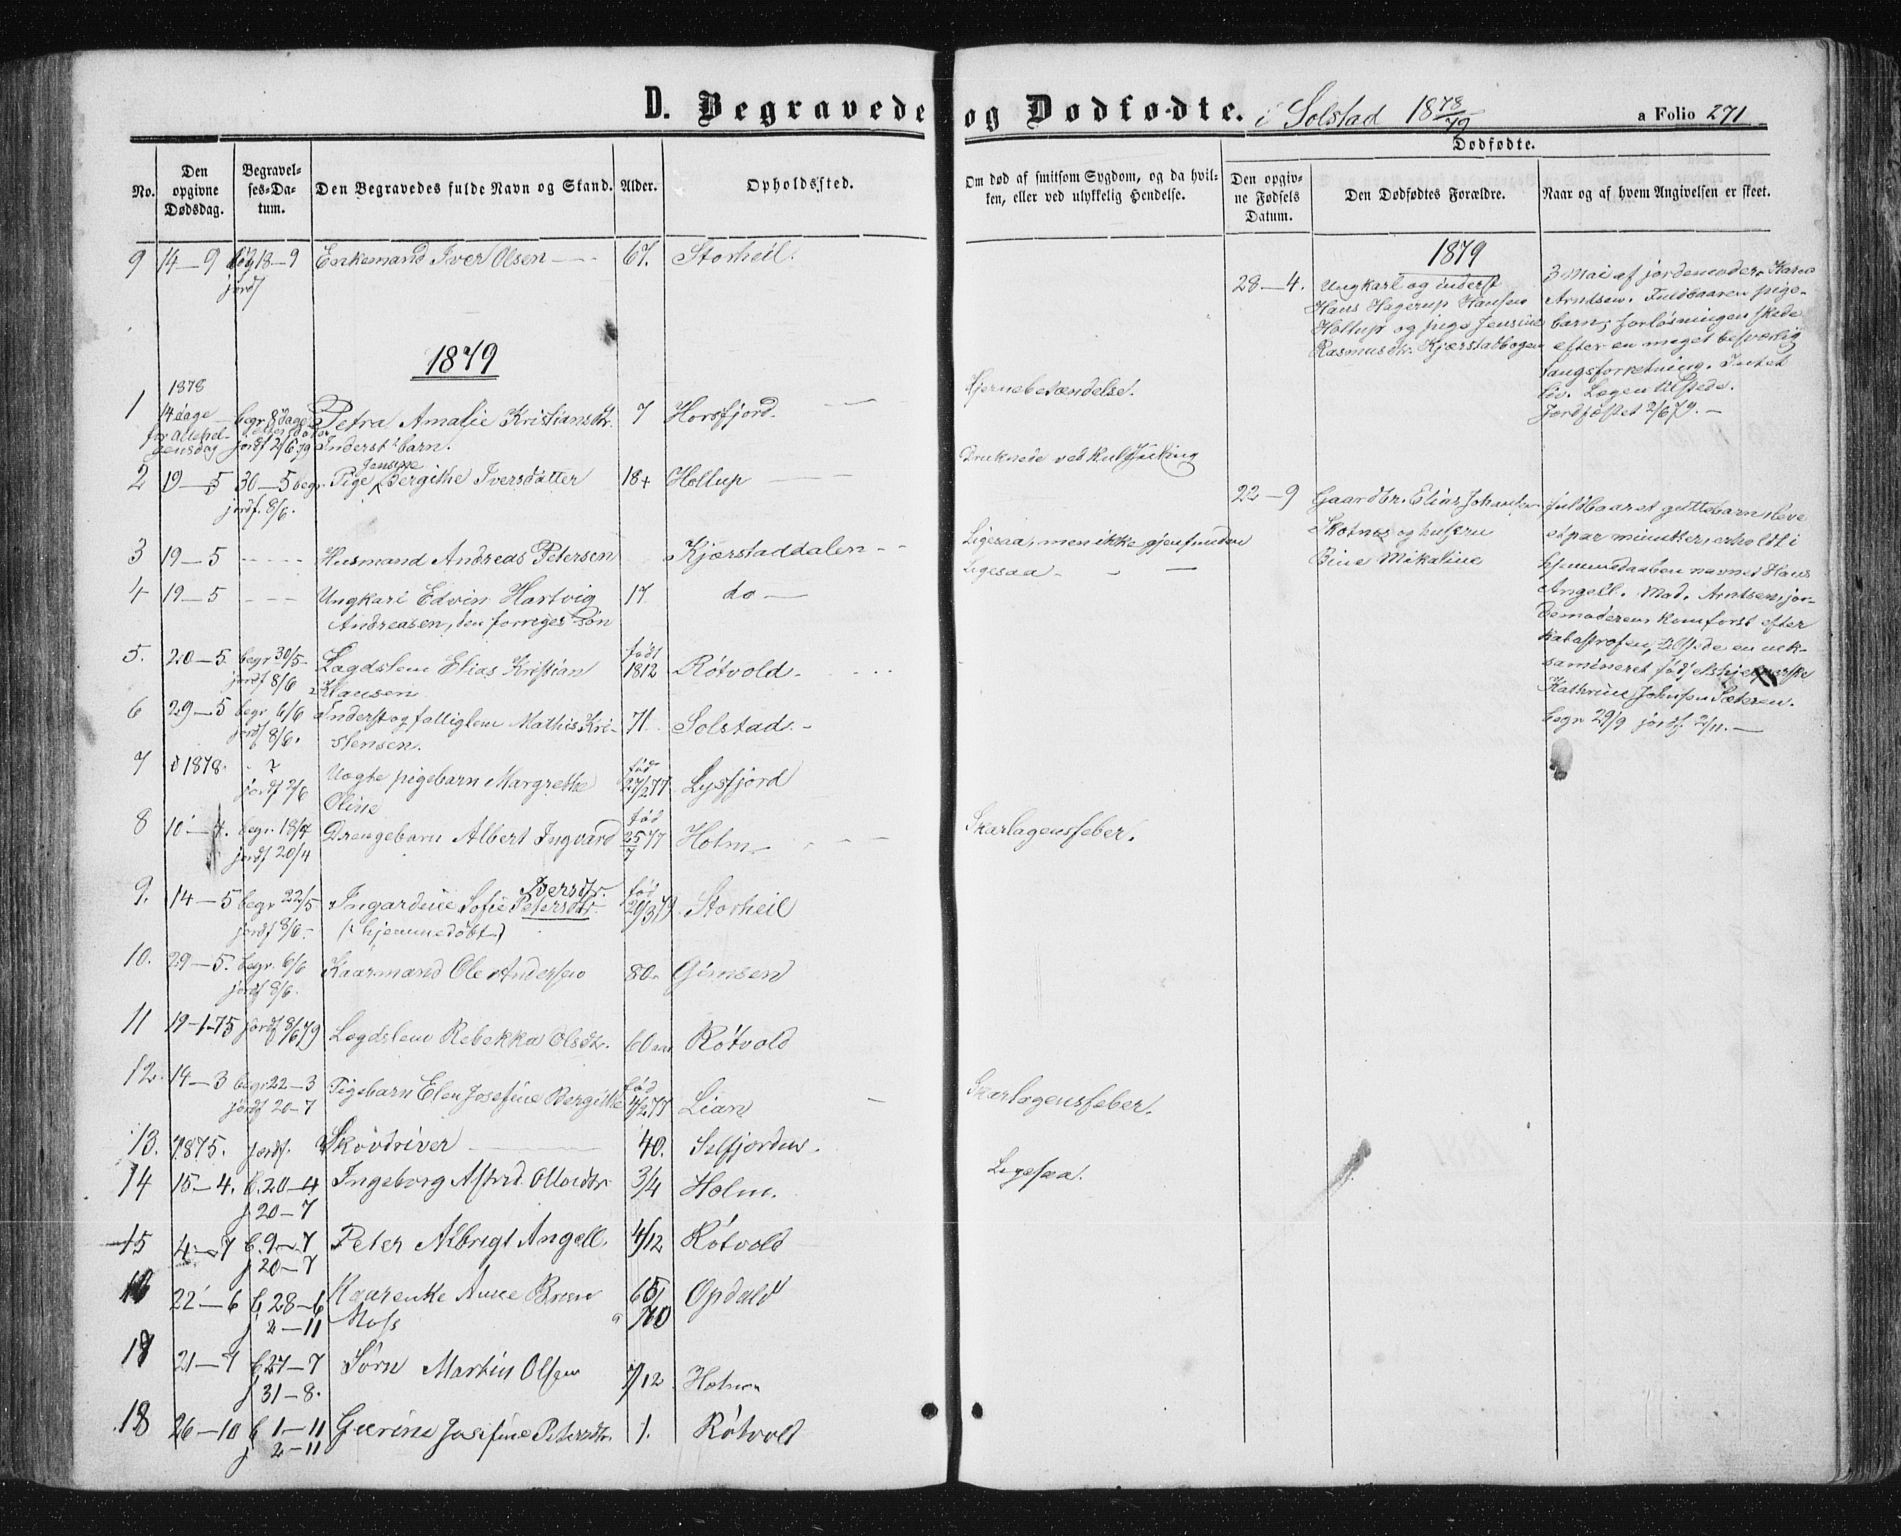 D. Begravede og Dødfødte. i Solstad 1878/79 a Folio 271
No.
Den opgivne Dødsdag.
Begravelses-Datum.
Den Begravedes fulde Navn og Stand.
Alder.
Opholdssted.
Om død af smitsom Sygdom, og da hvilken, eller ved ulykkelig Hendelse.
Dødfødte.
Den opgivne Fødsels Datum.
Den Dødfødtes Forældre.
Naar og af hvem Angivelsen er skeet.
9 14–9 beg 18–9 Enkemand Iver Olsen 67. Storheil.
jordf
1879
1878
1 14 dage begr. 8 dage Petra Amalie Kristiansdtr. 7 Horsfjord. Hjernebetændelse.
jordf 2/6 79 Inderst barn.
2 19–5 30–5 begr. Pige Jensine Bergithe Iversdatter 18 Hollup Druknede ved
jordf. 8/6.
3 19–5 Husmand Andreas Petersen Kjærstaddalen Ligesaa, men ikke gjenfunden
4 19–5 Ungkarl Edvin Hartvig 17 do Ligesaa
Andreasen, den forriges Søn
5. 20–5 begr 30/5 Lægdslem Elias Kristian født 1812 Røtvold
jordf 8/6 Klausen
6 29–5 begr 6/6 Inderst og fattiglem Mathis Kri- 71 Solstad
jordf 8/6. stensen.
7 d 1878. ? Uægte pigebarn Margrethe fød 27/2 77 Lysfjord
jordf 2/6 Oline
8 10–4. begr. 18/4 Drengebarn Albert Ingvard fød 25/7 77 Holm Skarlagensfeber.
jordf 20/4
9. 14–5 begr 22/5 Ingardine Sofie Petersdtr. Iversdtr. fød 29/3 79 Storheil
jordf 8/6 (hjemmedøbt)
10. 29–5. begr. 6/6 Kaarmand Ole Andersen 80 Gimsen
jordf 8/6.
11 19–1–75 jordf 8/6 79 Lægdslem Rebekka Olsdtr. 60 aar Røtvold
12. 14–3 begr 22–3 Pigebarn Elen Josefine Bergithe fød 4/2 77 Lian Skarlagensfeber.
jordf 20–7
13. 1875. jordf. Skövdriver 40. Selfjorden.
14 15–4. b. 20–4 Ingeborg Astrid 3/4 Holm. Ligesaa.
j 20–7
15 4–7 b. 9–7 Peter Albrigt Angell. 4/12 Røtvold
j 20–7
16 22–6 b 28–6 Kaarenke Anne 65/70 Opdald
j 2–11 Moss
17 21–7 b. 27–7 Sørn Martin Olsen 7/12 Holm
j 31–8.
18 26–10 b 1–11 Gurine Josefine Petersdtr. 1. Røtvold
j 2–11
1879
28–4.
Ungkarl og inderst
Hans Hagerup Hansen
Hollup og pige Jensine
Rasmusdtr. Kjærstadbogen
3 Mai af jordemoder Karen
Arndsen. Fuldbaaren pige-
barn; forløsningen skede
efter en meget besværlig
tangforretning. Intet
liv. Lægen tilstede.
Jordfæstet 2/6 79.
22–9
Gaardbr. Elias Johansen
Skotnes og hustru
Bine Mikaline
fuldbaaret guttebarn, leve
et par minutter, erholdt i
hjemmedaaben navnet Hans
Angell. Mad. Arntsen, jor-
demoderen kom først efter
katastrofen, tilstede en uek-
samineret fødselshjelperske
Kathrine Johnsen Sæteren.
begr 29/9 jordf. 2/11.